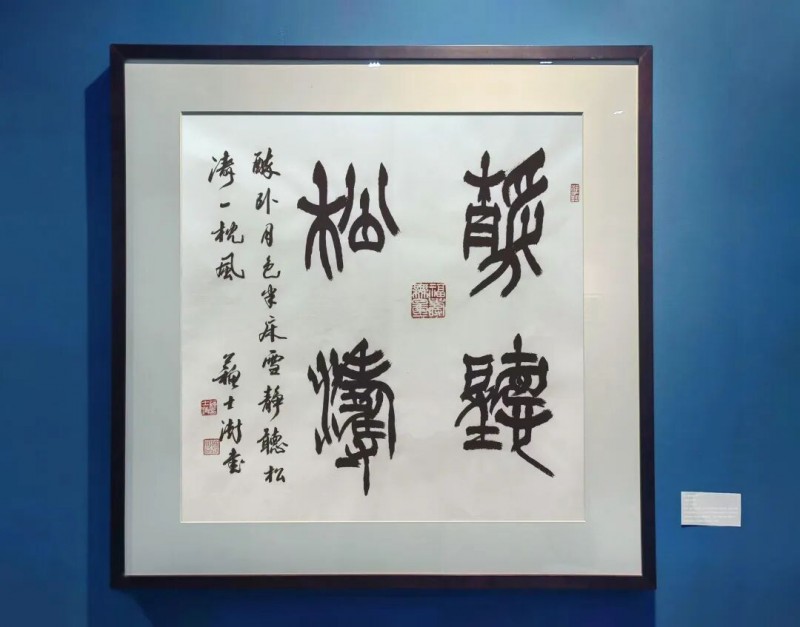 靜聽
松濤
醉卧月色半床雪静聽松
濤一枕風
蘇士澍書